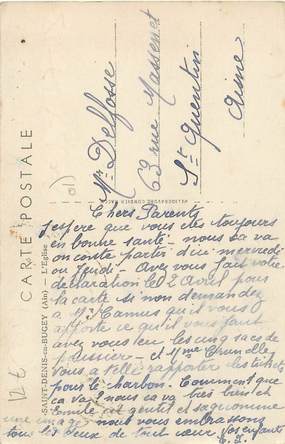 CARTE POSTALE
SAINT-DENIS-en-BUGEY (Ain) — L'Eglise
Mr Delfosse
63 rue Massenet
St Quentin
Aisne
Chers Parents
J'espere que vous etes toujours
en bonne santé - nous sa va
on conte partir d'ici mercredi
ou Jeudi - Avez vous fait votre
declaration le 2 Avril pour
la carte si non demandez
a Mr Camus qu'il vous
ce qu'il vous faut
avez vous eu les cinq sacs de
poussier - et Mme
vous a t'elle rapporter les tickets
pour le charbon. Comment que
ca va? nous ca va tres bien et
est gentil et
une image nous vous embrassons
tous les deux de tout cœur Vos enfants